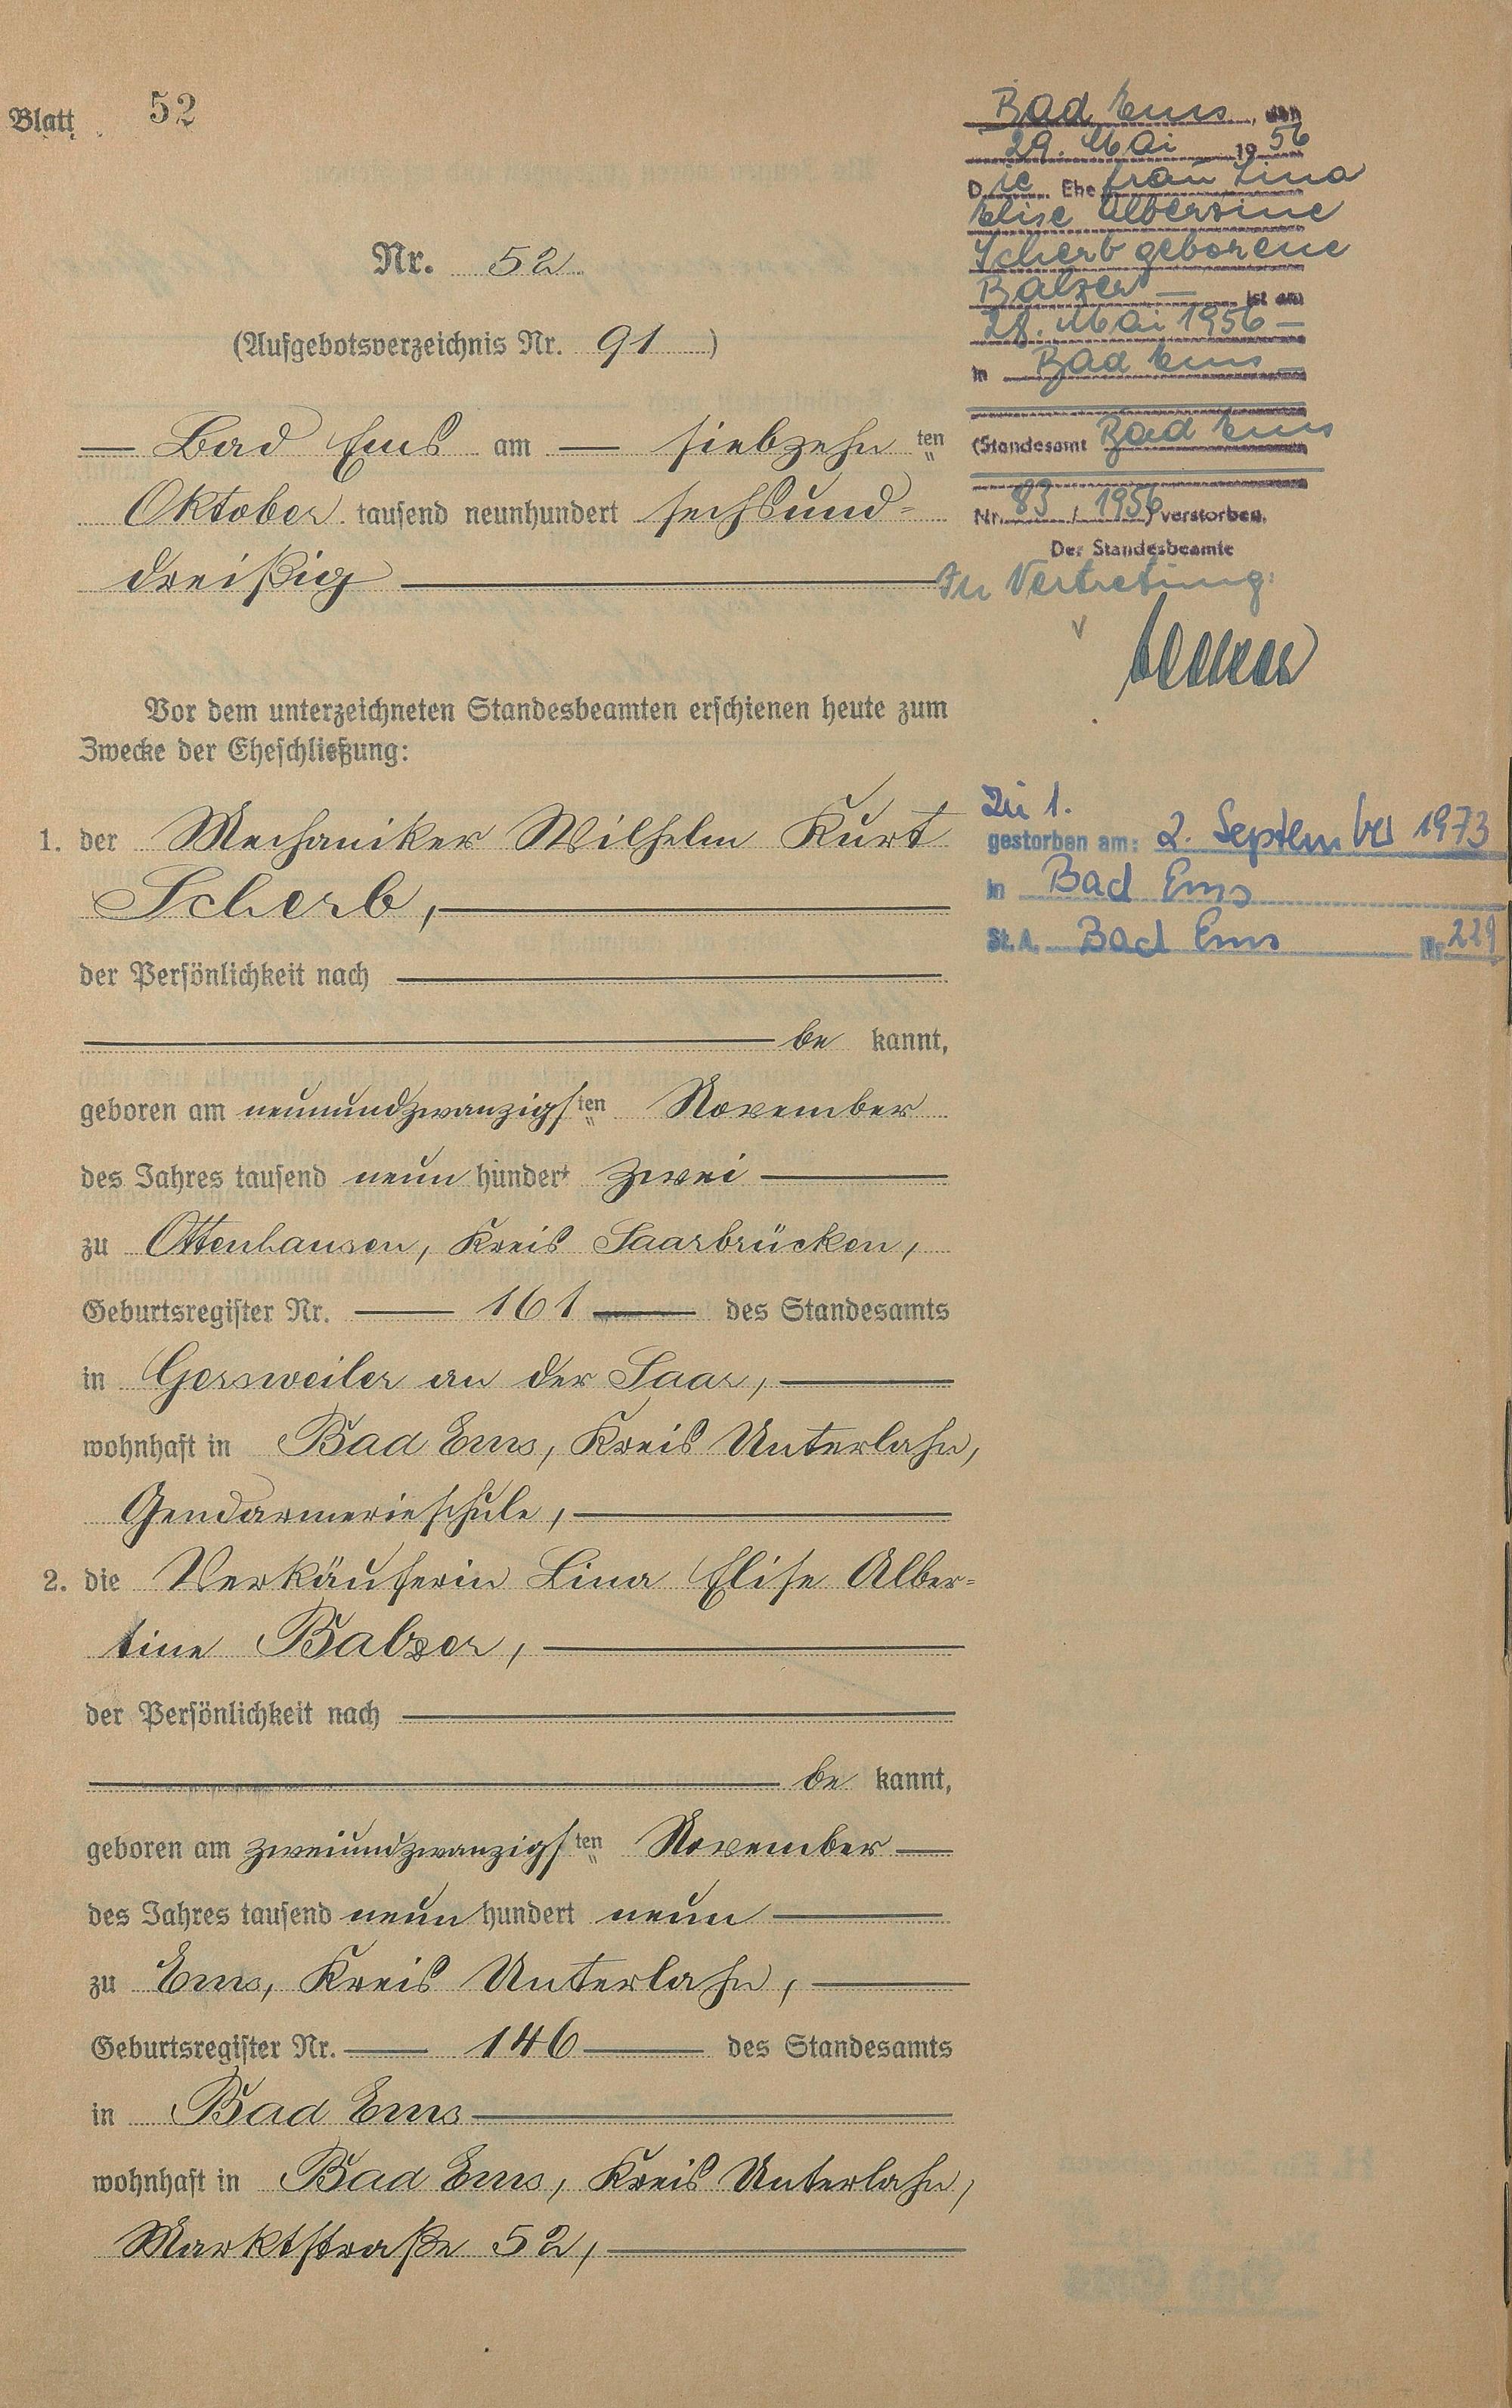 Blatt 52
Nr. 52
(Aufgebotsverzeichnis Nr. 91)
— Bad Ems am — siebzehn ten
Oktober tausend neunhundert sechsund-
dreißig
Vor dem unterzeichneten Standesbeamten erschienen heute zum
Zwecke der Eheschließung:
1. der Mechaniker Wilhelm Kurt
Scherb,
der Persönlichkeit nach
be kannt,
geboren am neunundzwanzigsten November
des Jahres tausend neun hundert zwei
zu Ottenhausen, Kreis Saarbrücken,
Geburtsregister Nr. 161 des Standesamts
in Gersweiler an der Saar,
wohnhaft in Bad Ems, Kreis Unterlahn,
Gendarmerieschule,
2. die Verkäuferin Lina Elise Alber-
tine Balzer,
der Persönlichkeit nach
be kannt,
geboren am zweiundzwanzigsten November
des Jahres tausend neun hundert neun
zu Ems, Kreis Unterlahn,
Geburtsregister Nr. 146 des Standesamts
in Bad Ems
wohnhaft in Bad Ems, Kreis Unterlahn,
Marktstraße 52,
Bad Ems, den
29. Mai 1956
Die Ehefrau Lina
Elise Albertine
Scherb geborene
Balzer — ist am
28. Mai 1956 —
in Bad Ems —
(Standesamt Bad Ems
Nr. 83 / 1956) verstorben.
Der Standesbeamte
In Vertretung:
Zu 1.
gestorben am: 2. September 1973
in Bad Ems
St. A. Bad Ems Nr. 229